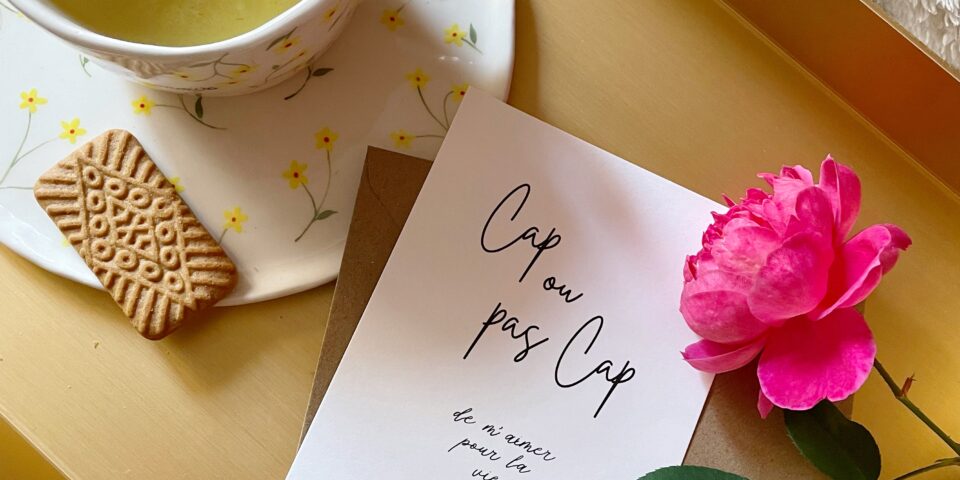 Cap
ou
pas Cap
de m'aimer
pour la
vie